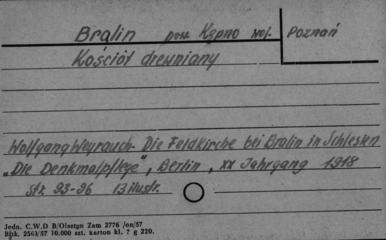 Bralin pow. Kępno woj. Poznań
Kościół drewniany
Wolfgang Weyrauch - Die Feldkirche bei Bralin in Schlesien
„Die Denkmalpflege", Berlin, XX Jahrgang 1918
Str 93-96 13 ilustr.
Jedn. C.W.D B/Olsztyn Zam 2776 /on/57
Bpk. 2561/57 10.000 szt. karton kl. 7 g 220.